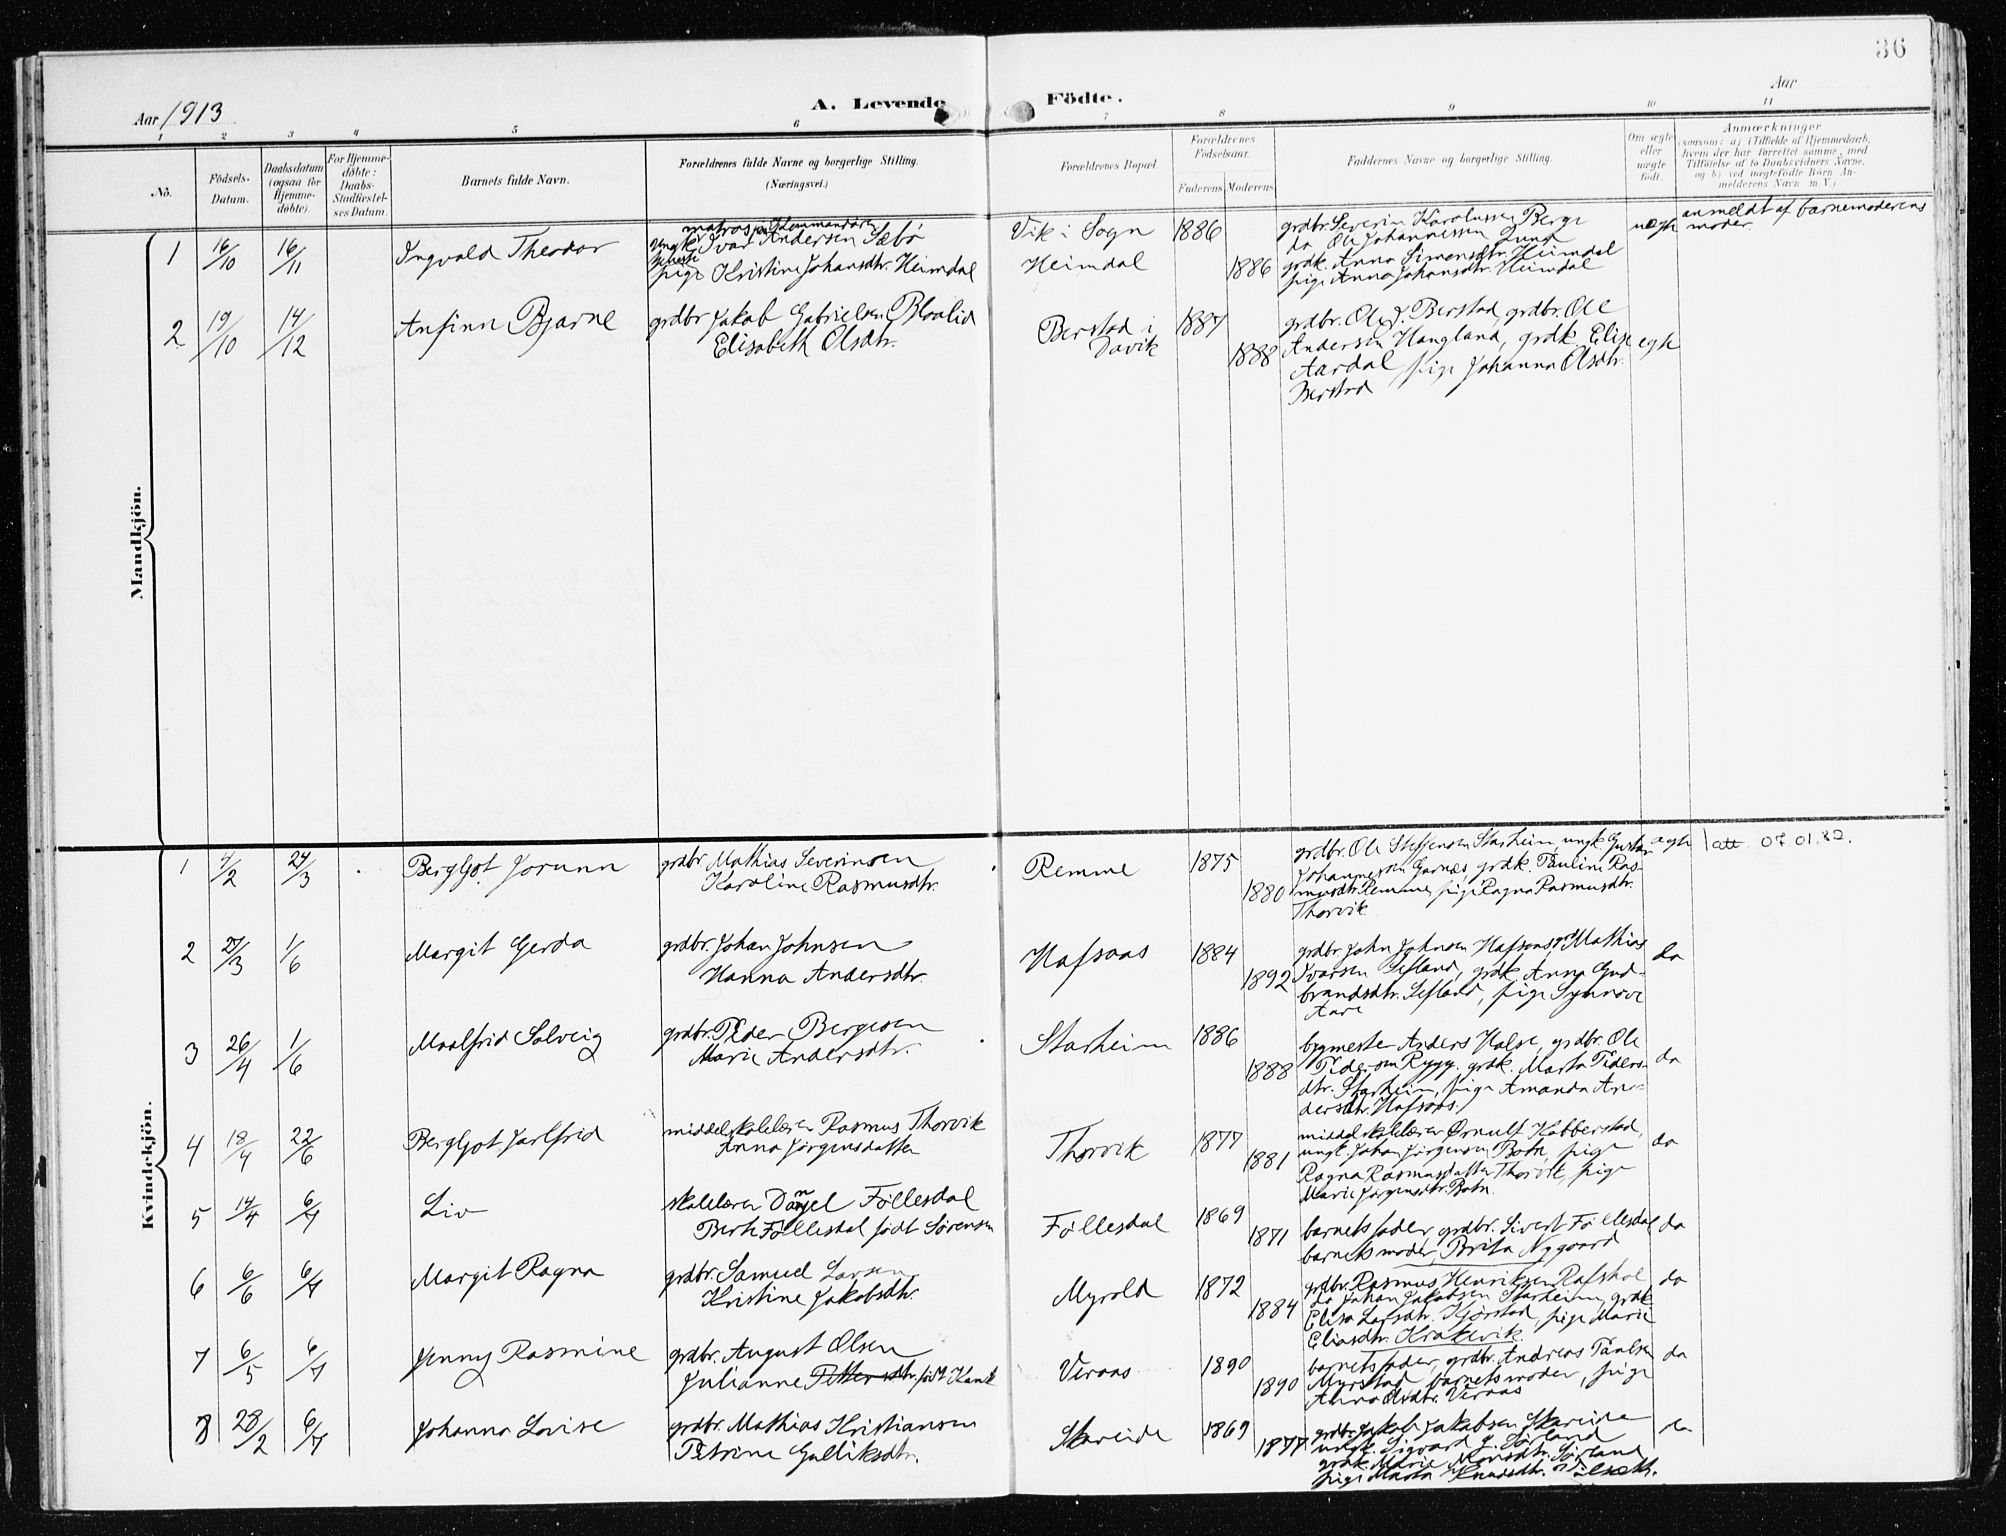 36
Aar 1913
A. Levende Födte.
Aar
1 2 3 4 5 6 7 8 9 10 11
No.
Födsels-Datum.
Daabsdatum (ogsaa for Hjemme-döbte).
For Hjemme-döbte: Daabs-Stadfæstel-ses Datum.
Barnets fulde Navn.
Forældrenes fulde Navne og borgerlige Stilling.
(Næringsvei.)
Forældrenes Bopæl.
Forældrenes Födselsaar.
Faderens Moderens
Faddernes Navne og borgerlige Stilling.
Om ægte eller uægte födt.
Anmærkninger
saasom: a) i Tilfælde af Hjemmedaab, hvem der har forrettet samme, med Tilföielse af to Daabsvidners Navne, og b) ved uægtefödte Börn An-melderens Navn m. V.)
Mandkjön.
1 16/10 16/11 Ingvald Theodor
Ungk. Ivar Andersen Sæbö
pige Kristine Johansdtr. Heimdal
Vik i Sogn 1886
Heimdal 1886
grdbr. Severin Karolussen Berge
da Ole Johannessen Lund
grdk. Anna Simensdtr. Heimdal
pige Anna Johansdtr. Heimdal
uegte
anmeldt af barnemoderens
moder.
2 19/10 14/12 Anfinn Bjarne
grdbr. Jakob Gabrielsen Blaalid
Elisabeth Olsdtr.
Berstad i
Davik
1887
1888
grdbr. Ole J. Berstad, grdbr. Ole
Andersen Haugland, grdk. Elise
Aardal, pige Johanna Olsdtr.
Berstad
egte
Kvindekjön.
1 4/2 24/3 Bergljot Jorunn
grdbr. Mathias Severinsen
Karoline Rasmusdtr.
Remme 1875
1880
grdbr. Ole Steffensen Starheim, ungk. Gustav
Johannessen Garnes, grdk. Pauline Ras-
musdtr. Remme, pige Ragna Rasmusdtr.
Thorvik
ægte
att 07.01.82.
2 27/3 1/6 Margit Gerda
grdbr. Johan Johnsen
Hanna Andersdtr.
Hafsaas 1884
1892
grdbr. John Johnsen Hafsaas, Mathias
Ivarsen Sefland, grdk. Anna Gud-
brandsdtr. Sefland, pige Synnöve
Aare
da
3 26/4 1/6 Maalfrid Solveig
grdbr. Peder Bergesen
Marie Andersdtr.
Starheim 1886
1888
bygmester Anders Halse, grdbr. Ole
Pedersen Rygg, grdk. Marta Peders-
dtr. Starheim, pige Amanda An-
dersdtr. Hafsaas.
da
4 18/4 22/6 Bergljot Jarlfrid
middelskolelærer Rasmus Thorvik
Anna Jörgensdatter
Thorvik 1877
1881
middelskolelærer Ørnulf Hobberstad,
ungk. Johan Jörgensen Botn, pige
Ragna Rasmusdatter Thorvik, pige
Marie Jörgensdtr. Botn
da
5 14/4 6/7 Liv
skolelærer Daniel Föllesdal
Berte Föllesdal födt Sörensen
Föllesdal 1869
1871
barnets fader, grdbr. Sivert Föllesdal
barnets moder, Brita Nygaard
da
6 6/6 6/7 Margit Ragna
grdbr. Samuel Larsen
Kristine Jakobsdtr.
Myrold 1872
1884
grdbr. Rasmus Henriksen Rafshol
da Johan Jakobsen Starheim, grdk.
Elisa Larsdtr. Hjörstad, pige Marie
Eliasdtr. Krakevik.
da
7 6/5 6/7 Jenny Rasmine
grdbr. August Olsen
Julianne Pettersdtr. födt Hauk
Veraas 1890
1890
barnets fader, grdbr. Andreas Paulsen
Myrstad, barnets moder, pige
Anna Olsdtr. Veraas
da
8 28/2 6/7 Johanna Lovise
grdbr. Mathias Kristiansen
Petrine Gulliksdtr.
Skareide 1869
1877
grdbr. Jakob Jakobsen Skareide
ungk. Sigvard J. Sörland
grdk. Marie Monsdtr. Sörland
pige Marta Knudsdtr.
da